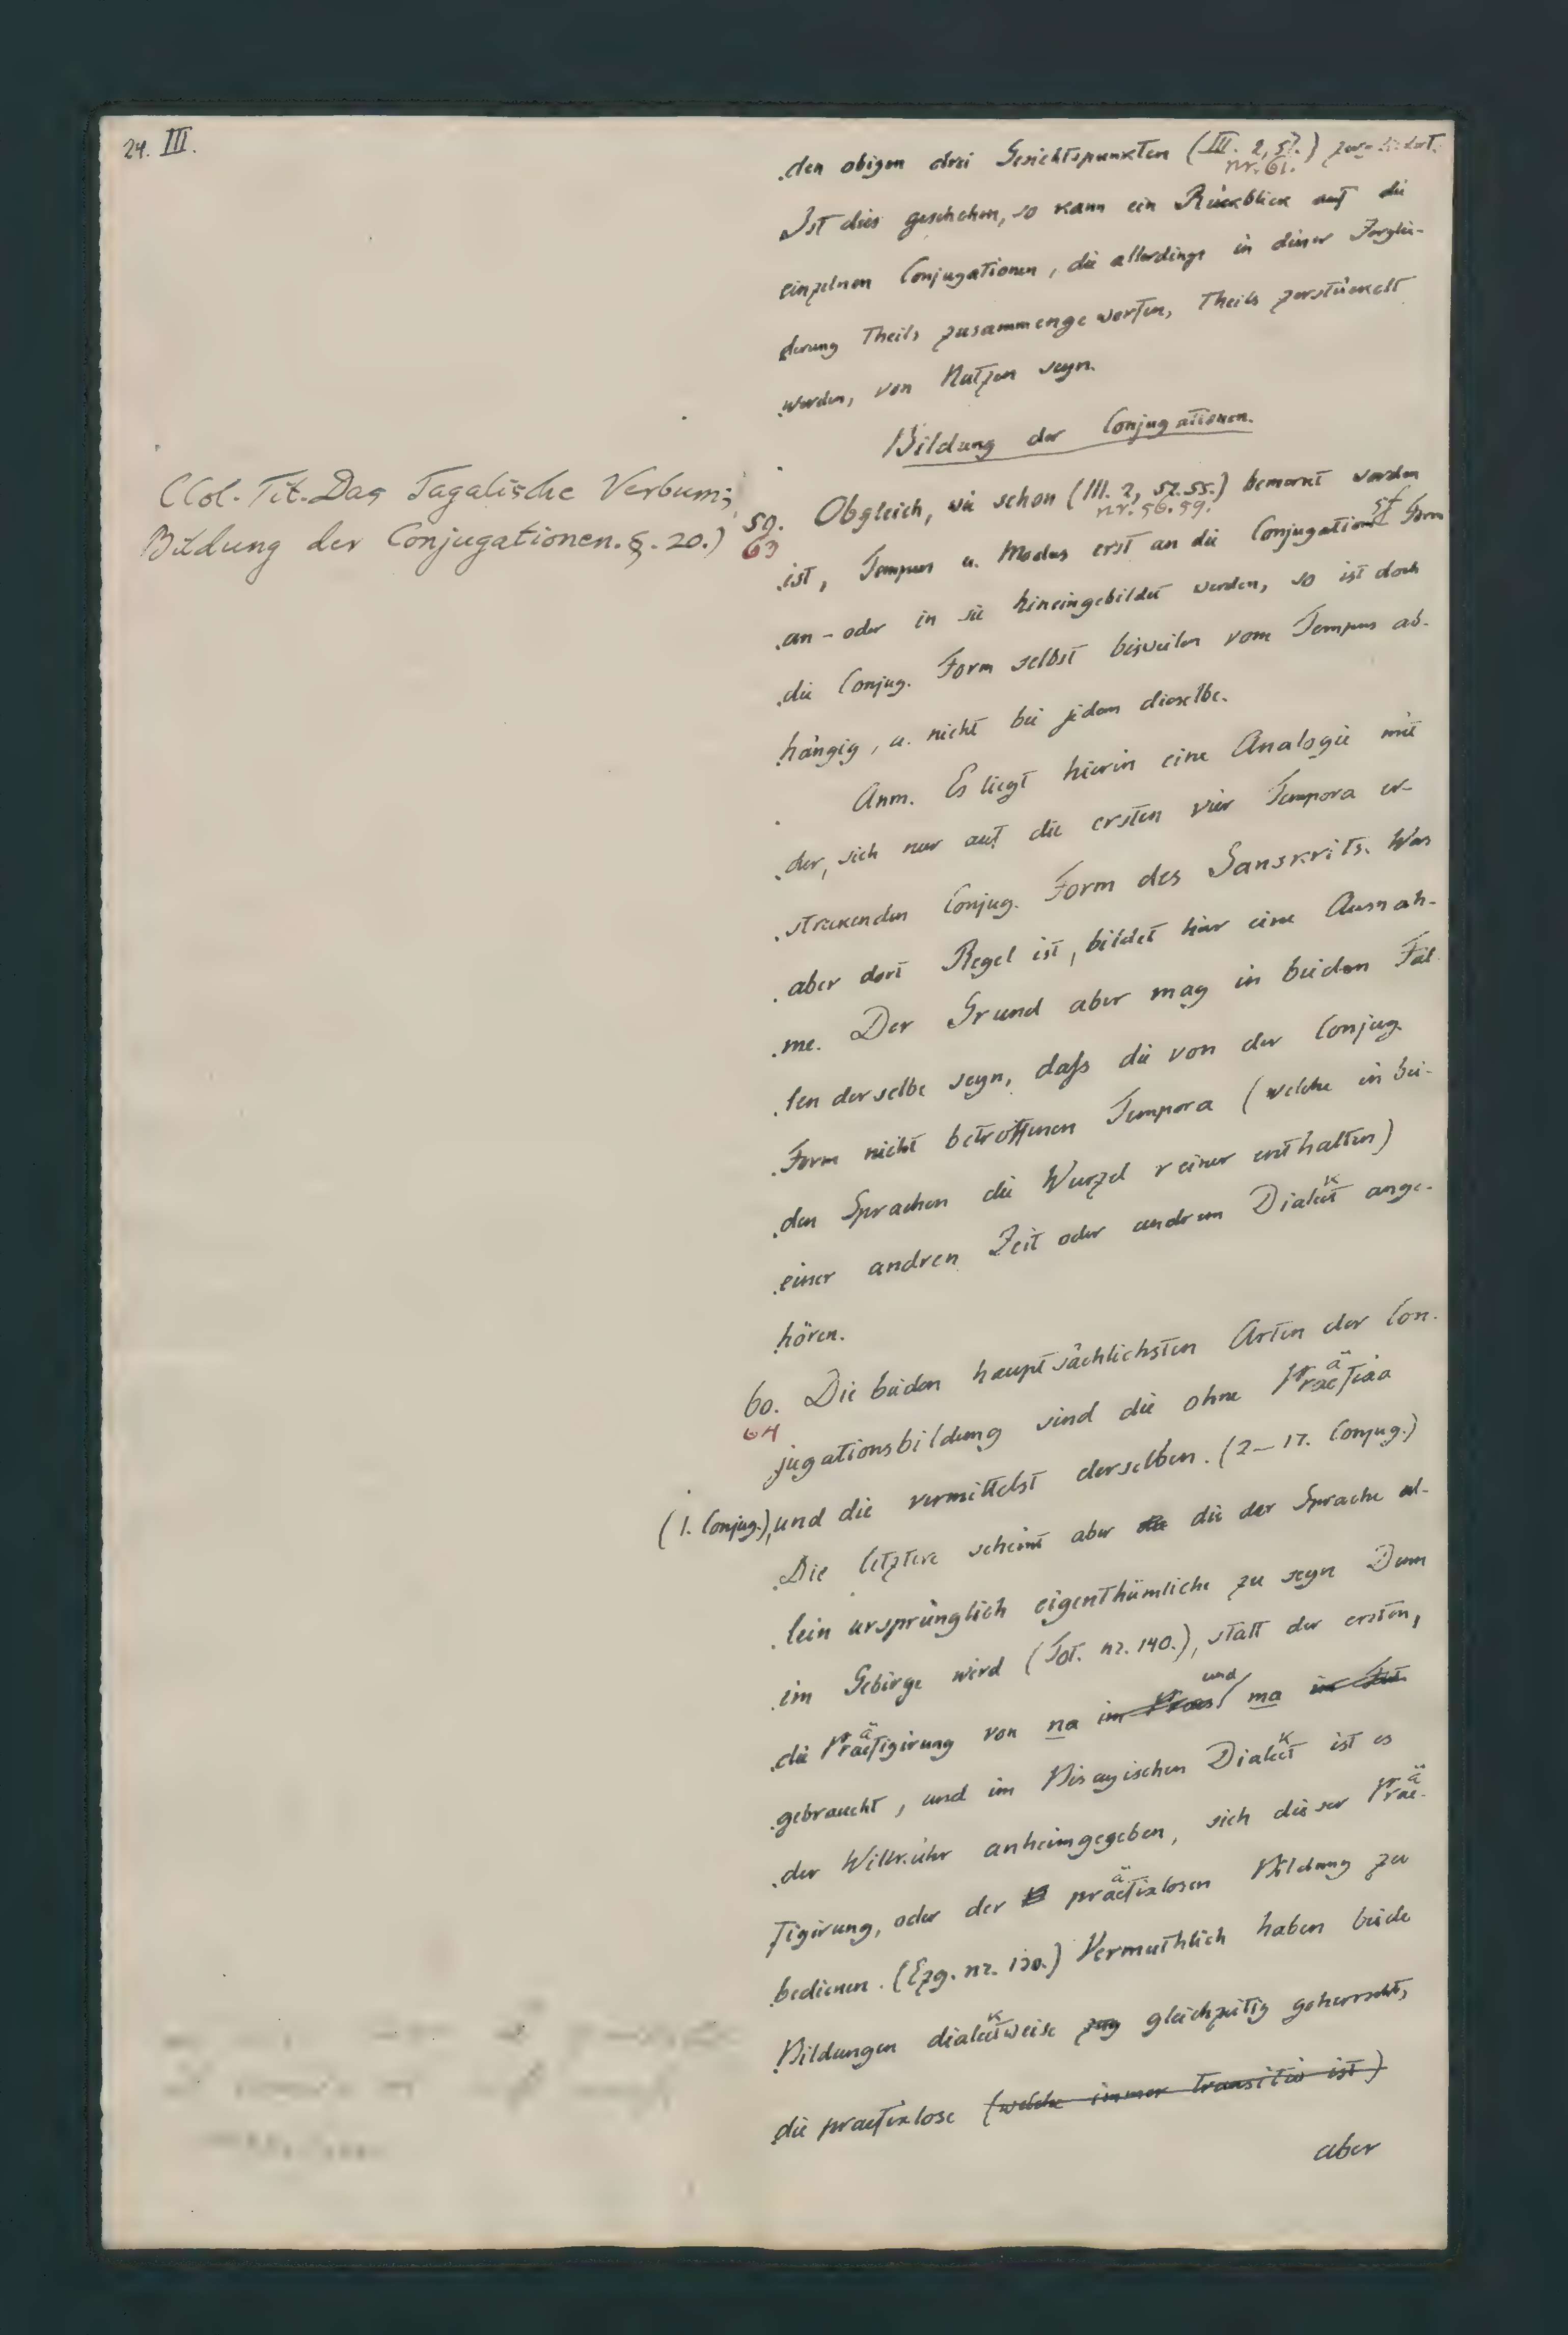 24. III.
den obigen drei Gesichtspunkten (III. 2, 57.)
nr. 61.
Ist dies geschehen, so kann ein Rückblick auf die
einzelnen Conjugationen, die allerdings in dieser Zerglie-
derung theils zusammengeworfen, theils zerstückelt
werden, von Nutzen seyn.
Bildung der Conjugationen.
(Col. Tit. Das Tagalische Verbum;
Bildung der Conjugationen. §. 20.)
59. Obgleich, wie schon (III. 2, 52. 55.) bemerkt worden
63 nr. 56. 59.
ist, Tempus u. Modus erst an die Conjugations Form
an- oder in sie hineingebildet werden, so ist doch
die Conjug. Form selbst bisweilen vom Tempus ab-
hängig, u. nicht bei jedem dieselbe.
Anm. Es liegt hierin eine Analogie mit
der, sich nur auf die ersten vier Tempora er-
streckenden Conjug. Form des Sanskrits. Was
aber dort Regel ist, bildet hier eine Ausnah-
me. Der Grund aber mag in beiden Fäl
len derselbe seyn, daß die von der Conjug.
Form nicht betroffenen Tempora (welche in bei-
den Sprachen die Wurzel reiner enthalten)
einer andren Zeit oder andrem Dialect ange-
k
hören.
60. Die beiden hauptsächlichsten Arten der Con-
64
jugationsbildung sind die ohne Praefixa
ä
(1. Conjug.), und die vermittelst derselben. (2–17. Conjug.)
Die letztere scheint aber die der Sprache al-
lein ursprünglich eigenthümliche zu seyn Denn
im Gebirge wird (Tot. nr. 140.), statt der ersten,
die Praefigirung von na im Praes und ma im Fut
ä
gebraucht, und im Bisayischen Dialect ist es
k
der Willkühr anheimgegeben, sich dieser Prae-
ä
figirung, oder der B praefixlosen Bildung zu
ä
bedienen. (Ezg. nr. 130.) Vermuthlich haben beide
Bildungen dialectweise zug gleichzeitig geherrscht,
k
die praefixlose (welche immer transitiv ist)
aber